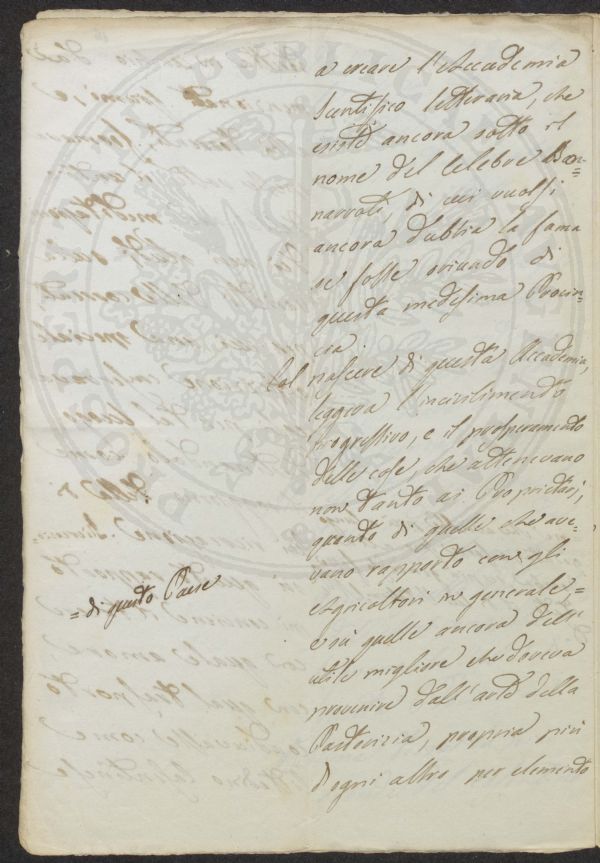 a creare l'Accademia
Scentifico letteraria, che
esiste ancora sotto il
nome del celebre Bon=
narroti di cui vuolsi
ancora dubbia la fama
se fosse oriundo di
questa medesima Provin=
cia.
Col nascere di questa Accademia,
leggeva l'incivilimento
progressivo, e il prosperamento
delle cose che attenevano
non tanto ai Proprietari,
quanto di quelle che ave=
vano rapporto con gli
Agricoltori in generale, =
= di questo Paese
e su quelle ancora dell'
utile migliore che doveva
provenire dall'arte della
Pastorizia, propria più
d'ogni altro per elemento